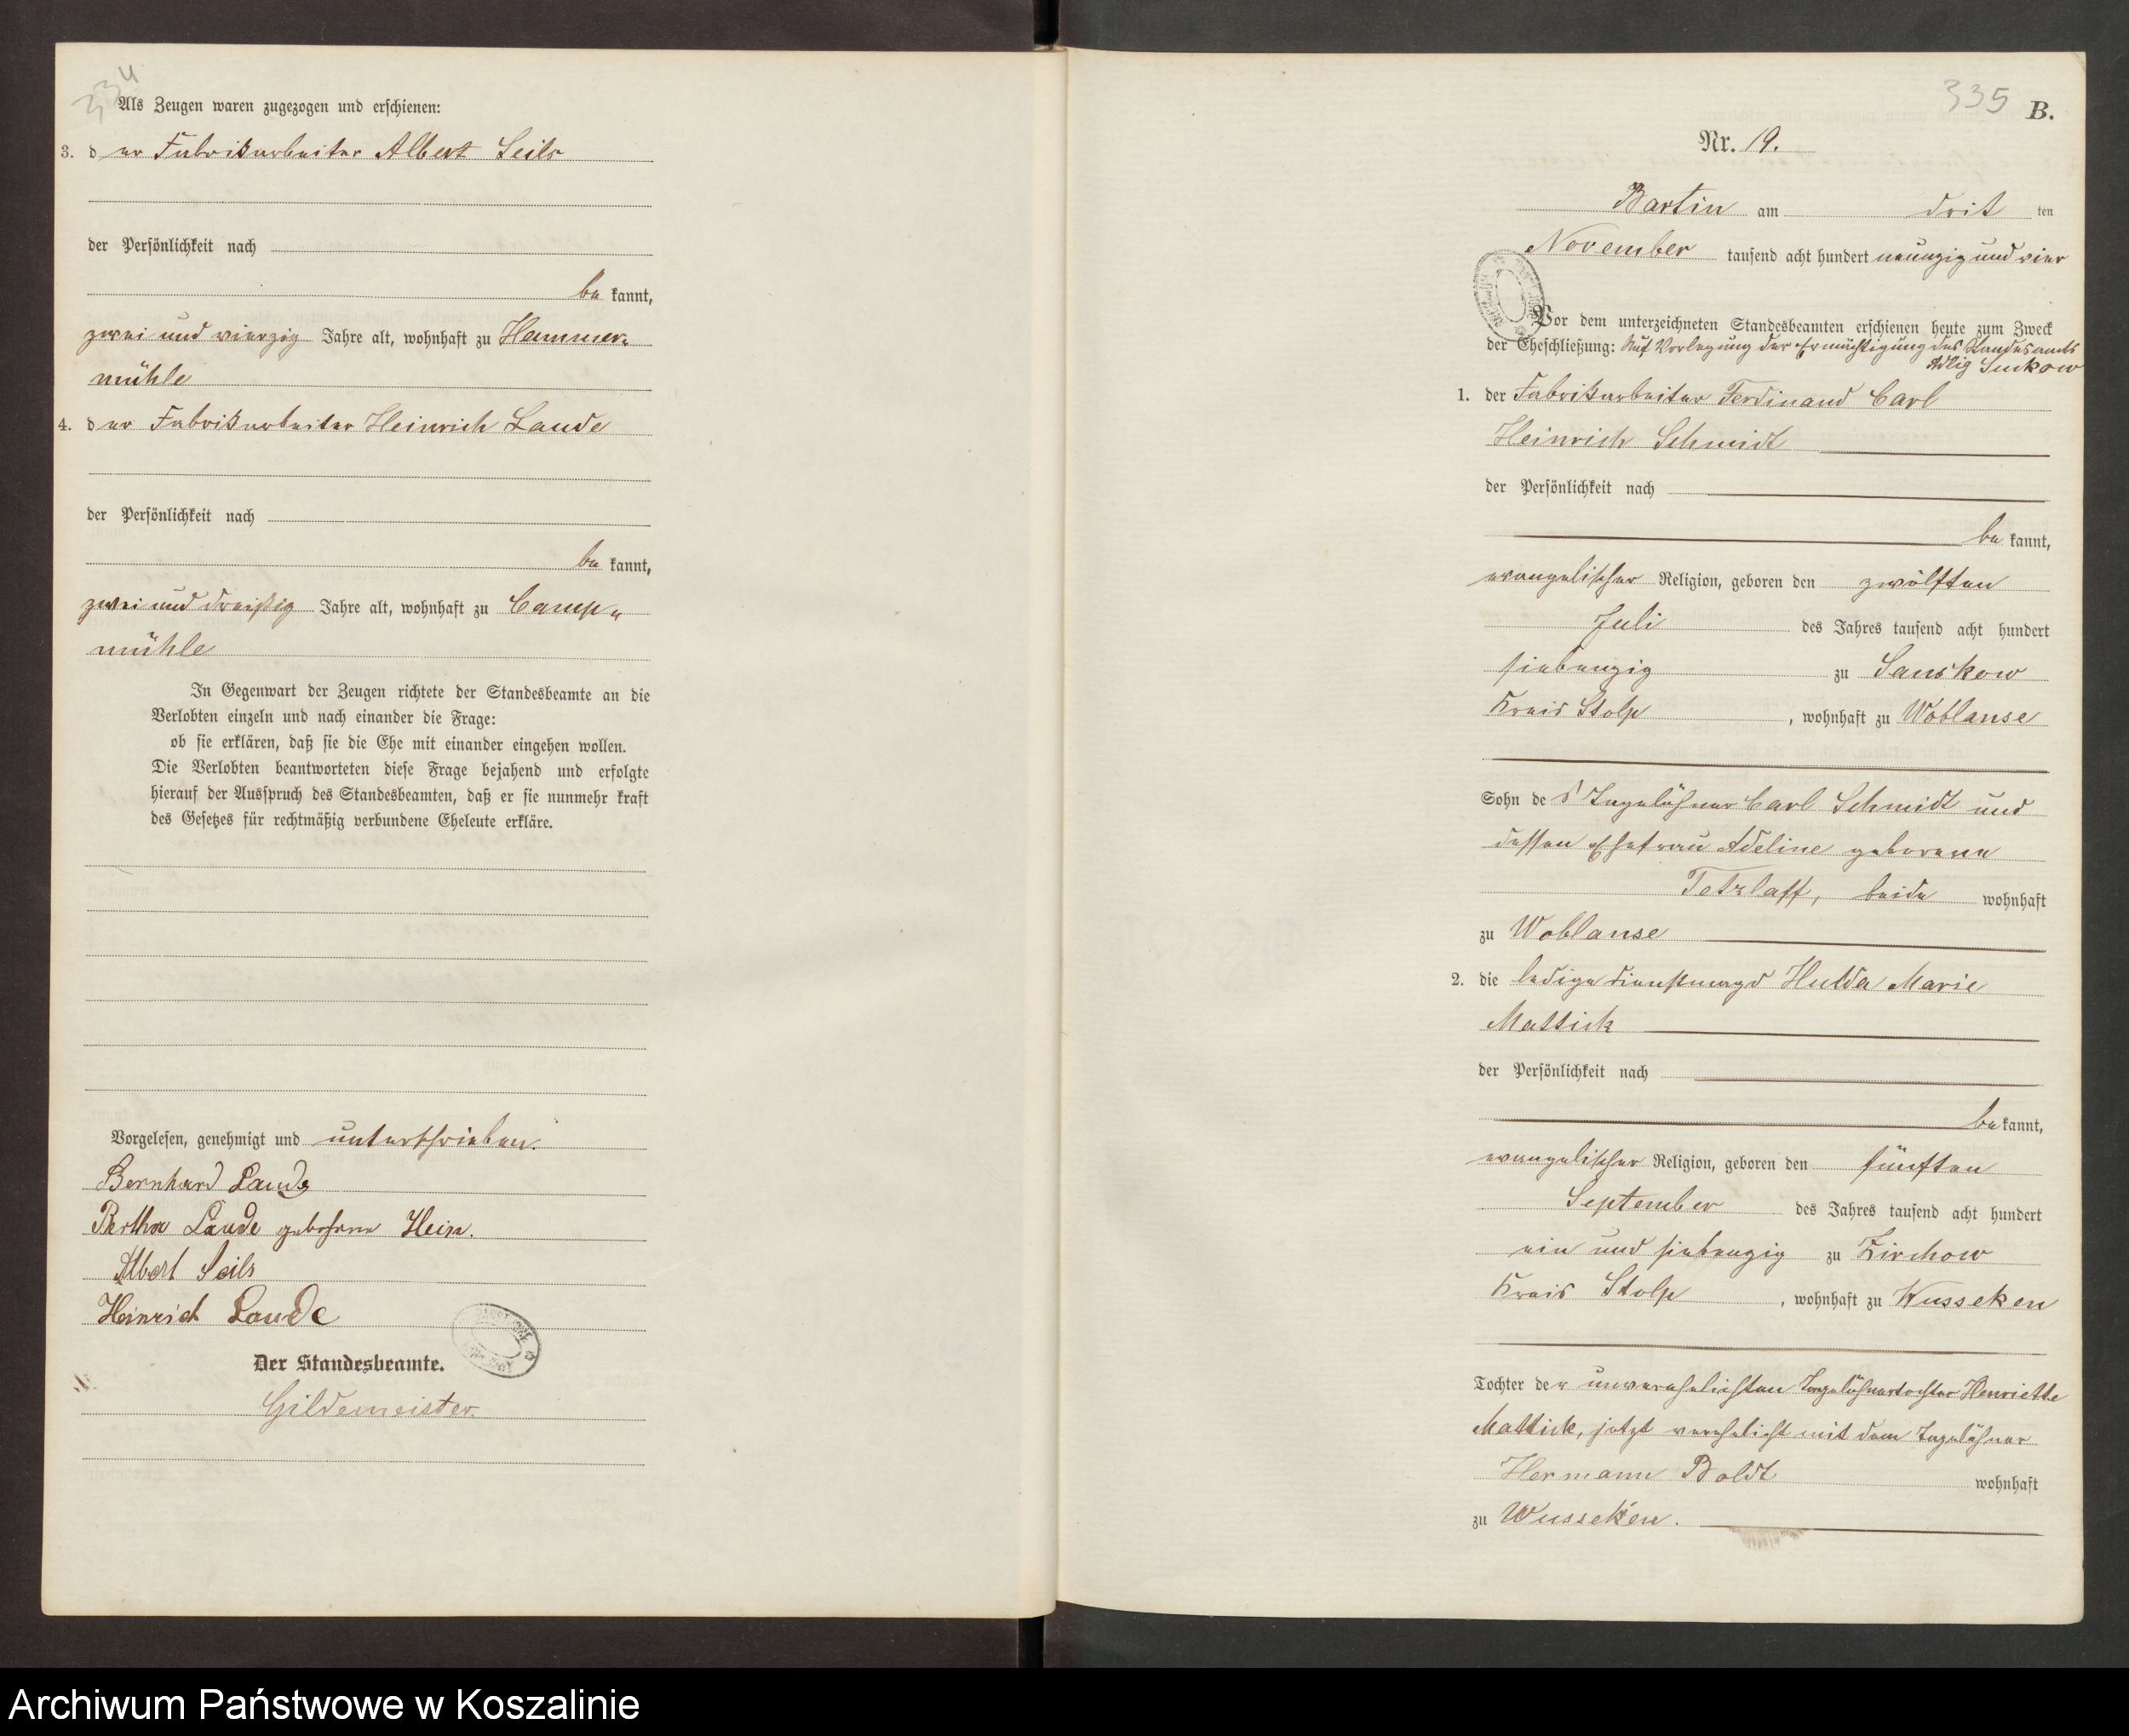 334
Als Zeugen waren zugezogen und erschienen:
3. der Fabrikarbeiter Albert Seils
der Persönlichkeit nach
bekannt,
zwei und vierzig Jahre alt, wohnhaft zu Hammer-
mühle
4. der Fabrikarbeiter Heinrich Laude
der Persönlichkeit nach
bekannt,
zwei und dreißig Jahre alt, wohnhaft zu Camp-
mühle
In Gegenwart der Zeugen richtete der Standesbeamte an die
Verlobten einzeln und nach einander die Frage:
ob sie erklären, daß sie die Ehe mit einander eingehen wollen.
Die Verlobten beantworteten diese Frage bejahend und erfolgte
hierauf der Ausspruch des Standesbeamten, daß er sie nunmehr kraft
des Gesetzes für rechtmäßig verbundene Eheleute erkläre.
Vorgelesen, genehmigt und unterschrieben.
Bernhard Laude
Bertha Laude geborene Hein.
Albert Seils
Heinrich Laude
Der Standesbeamte.
Gildemeister.
335
B.
Nr. 19.
Bartin am dritten
November tausend acht hundert neunzig und vier
Vor dem unterzeichneten Standesbeamten erschienen heute zum Zweck
der Eheschließung: Auf Vorlegung der Ermächtigung des Standesamts
Adlig Suckow
1. der Fabrikarbeiter Ferdinand Carl
Heinrich Schmidt
der Persönlichkeit nach
bekannt,
evangelischer Religion, geboren den zwölften
Juli des Jahres tausend acht hundert
siebenzig zu Sanskow
Kreis Stolp, wohnhaft zu Woblanse
Sohn des Tagelöhner Carl Schmidt und
dessen Ehefrau Adeline geborene
Tetzlaff, beide wohnhaft
zu Woblanse
2. die ledige Dienstmagd Hulda Marie
Mattick
der Persönlichkeit nach
bekannt,
evangelischer Religion, geboren den fünften
September des Jahres tausend acht hundert
ein und siebenzig zu Zirchow
Kreis Stolp, wohnhaft zu Wusseken
Tochter der unverehelichten Tagelöhnertochter Henriette
Mattick, jetzt verehelicht mit dem Tagelöhner
Hermann Boldt wohnhaft
zu Wusseken.
Archiwum Państwowe w Koszalinie